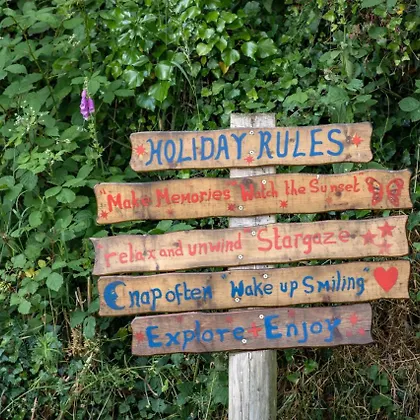 HOLIDAY RULES
"Make Memories" Watch the Sunset"
"relax and unwind "Stargaze
nap often "Wake up Smiling"
Explore Enjoy